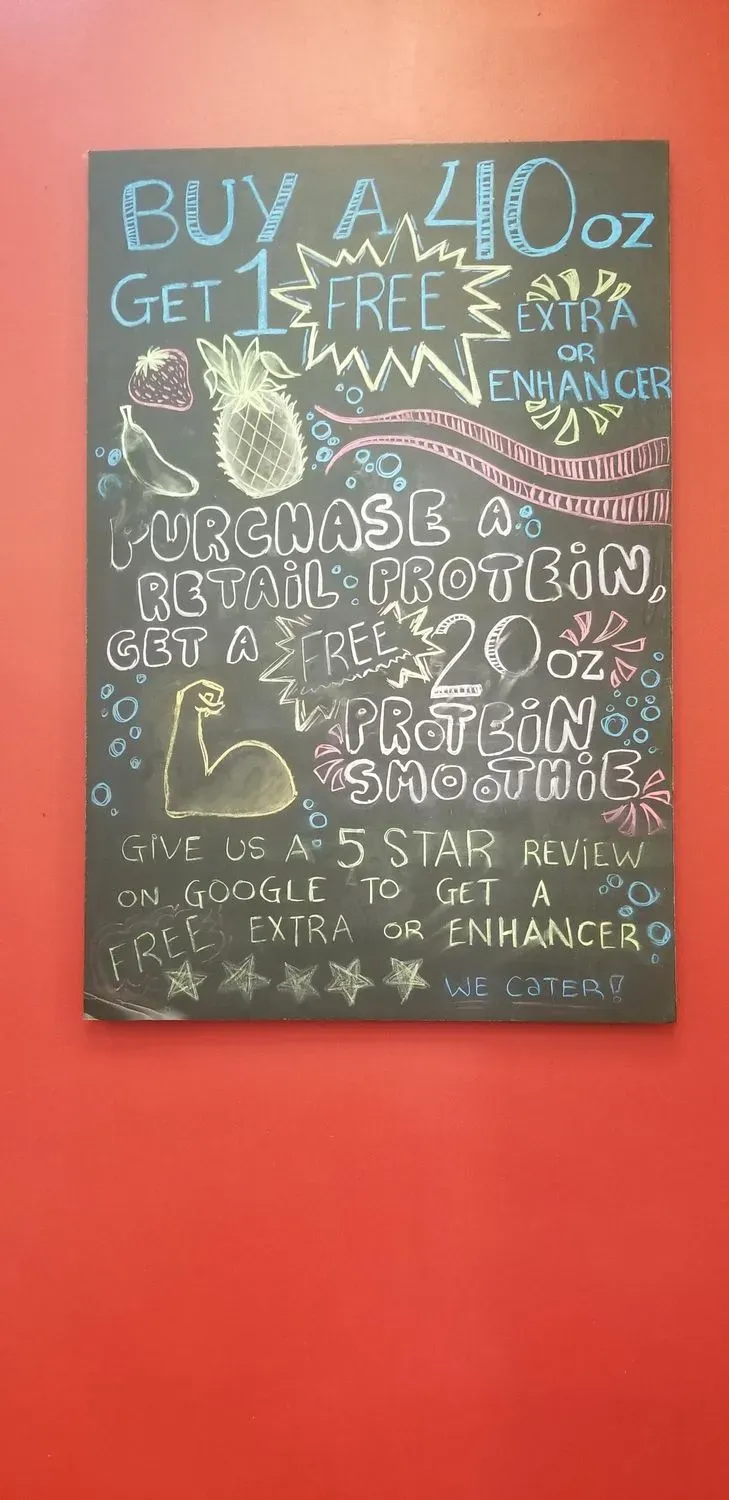 BUY A 40 OZ
GET 1 FREE EXTRA
OR
ENHANCER
PURCHASE A
RETAIL PROTEIN,
GET A FREE 20 OZ
PROTEIN
SMOOTHIE
GIVE US A 5 STAR REVIEW
ON GOOGLE TO GET A
FREE EXTRA OR ENHANCER
WE CATER!